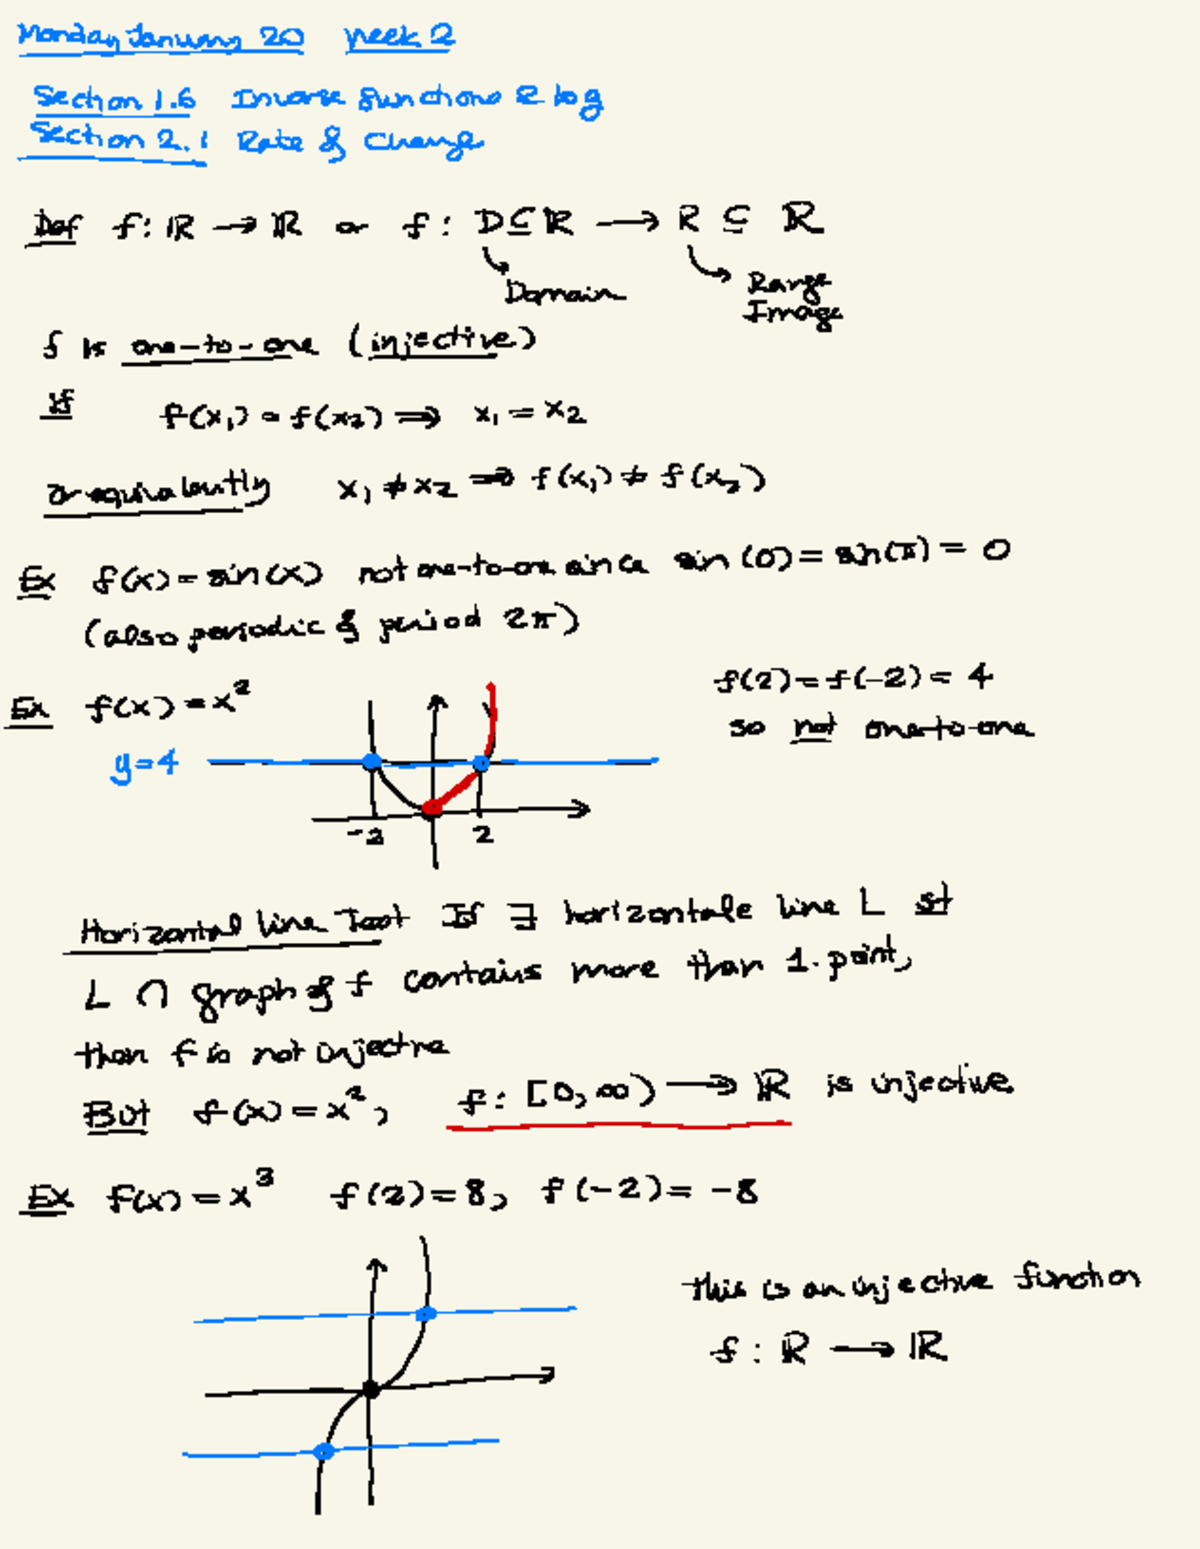 Monday January 20 Week 2
Section 1.6 Inverse functions & log
Section 2.1 Rate of Change
Def f: ℝ → ℝ or f: D ⊆ ℝ → R ⊆ ℝ
Domain
Range
Image
f is one-to-one (injective)
if f(x₁) = f(x₂) ⟹ x₁ = x₂
or equivalently x₁ ≠ x₂ ⟹ f(x₁) ≠ f(x₂)
Ex f(x) = sin(x) not one-to-one since sin(0) = sin(π) = 0
(also periodic of period 2π)
Ex f(x) = x²
f(2) = f(-2) = 4
so not one-to-one
y=4
-2 2
Horizontal line Test If ∃ horizontale line L st
L ∩ graph of f contains more than 1 point,
then f is not injective
But f(x) = x², f: [0, ∞) → ℝ is injective
Ex f(x) = x³ f(2) = 8, f(-2) = -8
This is an injective function
f: ℝ → ℝ